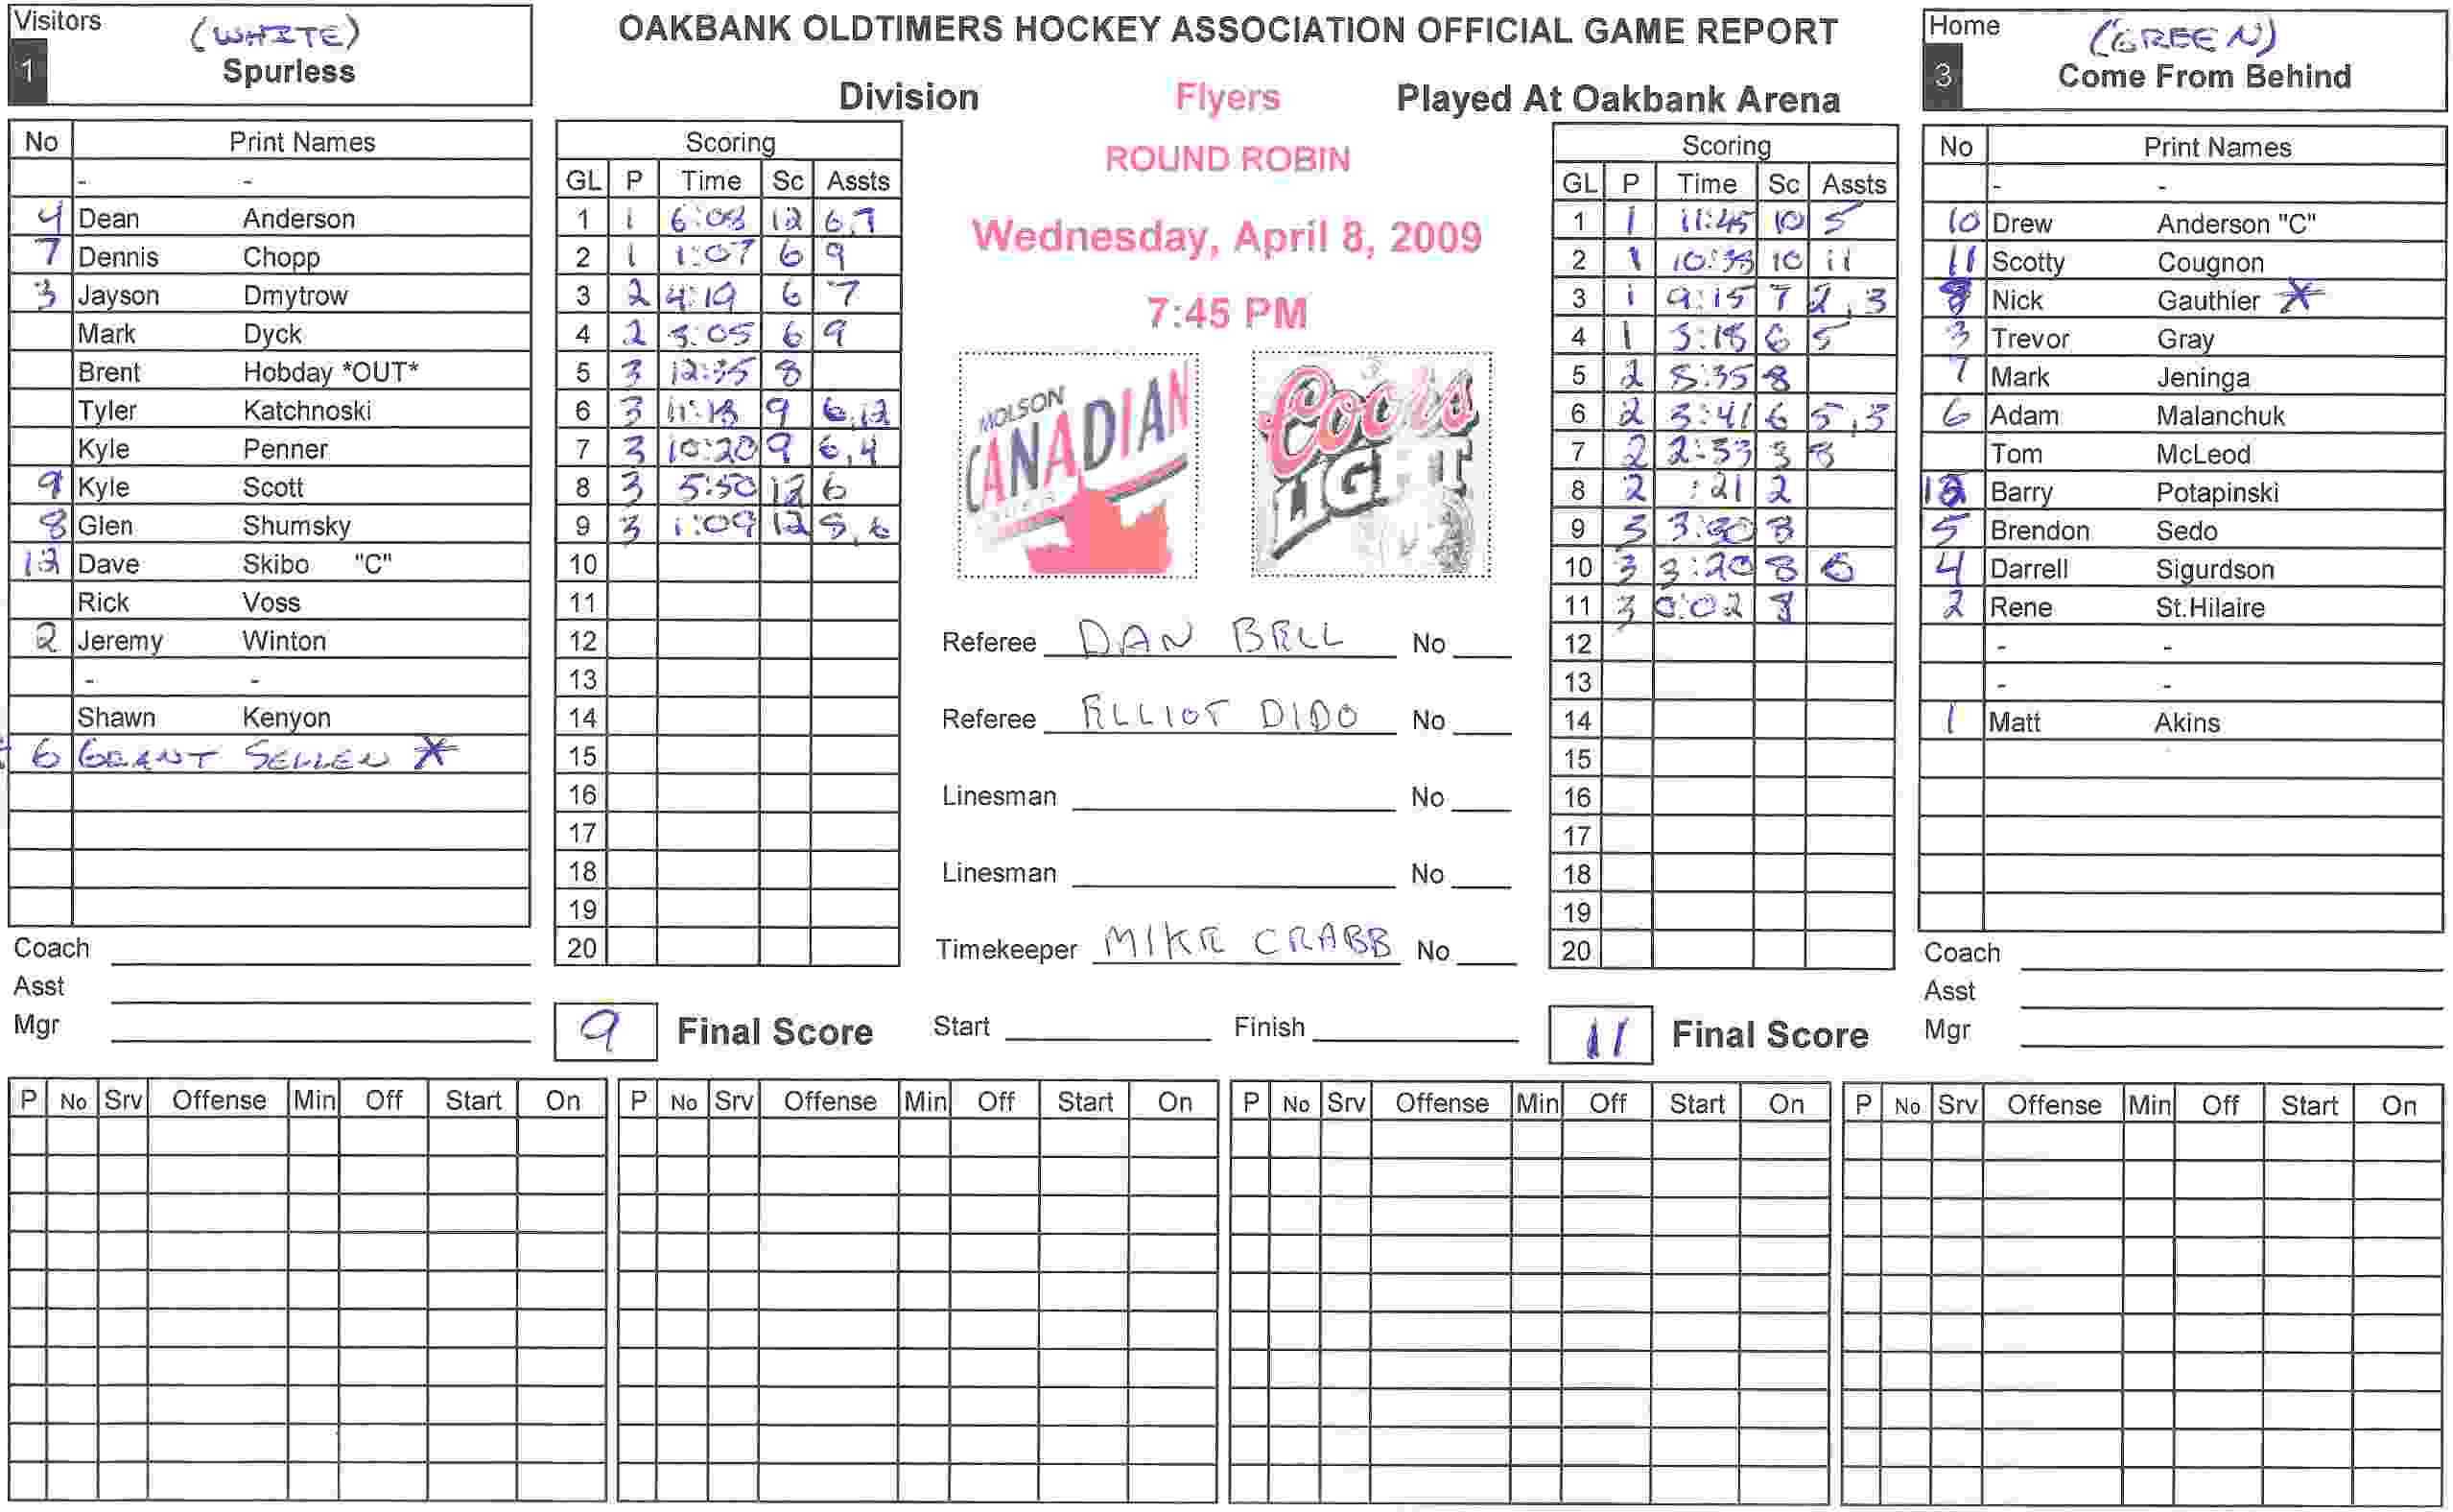 Visitors
(WHITE)
1
Spurless
OAKBANK OLDTIMERS HOCKEY ASSOCIATION OFFICIAL GAME REPORT
Division Flyers Played At Oakbank Arena
ROUND ROBIN
Wednesday, April 8, 2009
7:45 PM
Home
(GREEN)
3
Come From Behind
No Print Names
- -
4 Dean Anderson
7 Dennis Chopp
3 Jayson Dmytrow
Mark Dyck
Brent Hobday *OUT*
Tyler Katchnoski
Kyle Penner
9 Kyle Scott
8 Glen Shumsky
12 Dave Skibo "C"
Rick Voss
2 Jeremy Winton
- -
Shawn Kenyon
6 GRANT SELLEN *
Coach
Asst
Mgr
Scoring
GL P Time Sc Assts
1 1 6:08 12 6,7
2 1 1:07 6 9
3 2 4:19 6 7
4 2 3:05 6 9
5 3 12:35 8
6 3 11:18 9 6,12
7 3 10:20 9 6,4
8 3 5:50 12 6
9 3 1:09 12 8,6
10
11
12
13
14
15
16
17
18
19
20
9 Final Score
MOLSON
CANADIAN
Coors
LIGHT
Referee DAN BELL No
Referee ELLIOT DIDO No
Linesman No
Linesman No
Timekeeper MIKE CRABB No
Start Finish
Scoring
GL P Time Sc Assts
1 1 11:45 10 5
2 1 10:38 10 11
3 1 9:15 7 2,3
4 1 3:18 6 5
5 2 8:35 8
6 2 3:41 6 5,3
7 2 2:33 3 8
8 2 :21 2
9 3 8
10 3 3:20 8 6
11 3 0:02 8
12
13
14
15
16
17
18
19
20
11 Final Score
No Print Names
- -
10 Drew Anderson "C"
11 Scotty Cougnon
8 Nick Gauthier *
3 Trevor Gray
7 Mark Jeninga
6 Adam Malanchuk
Tom McLeod
12 Barry Potapinski
5 Brendon Sedo
4 Darrell Sigurdson
2 Rene St.Hilaire
- -
- -
1 Matt Akins
Coach
Asst
Mgr
P No Srv Offense Min Off Start On
P No Srv Offense Min Off Start On
P No Srv Offense Min Off Start On
P No Srv Offense Min Off Start On